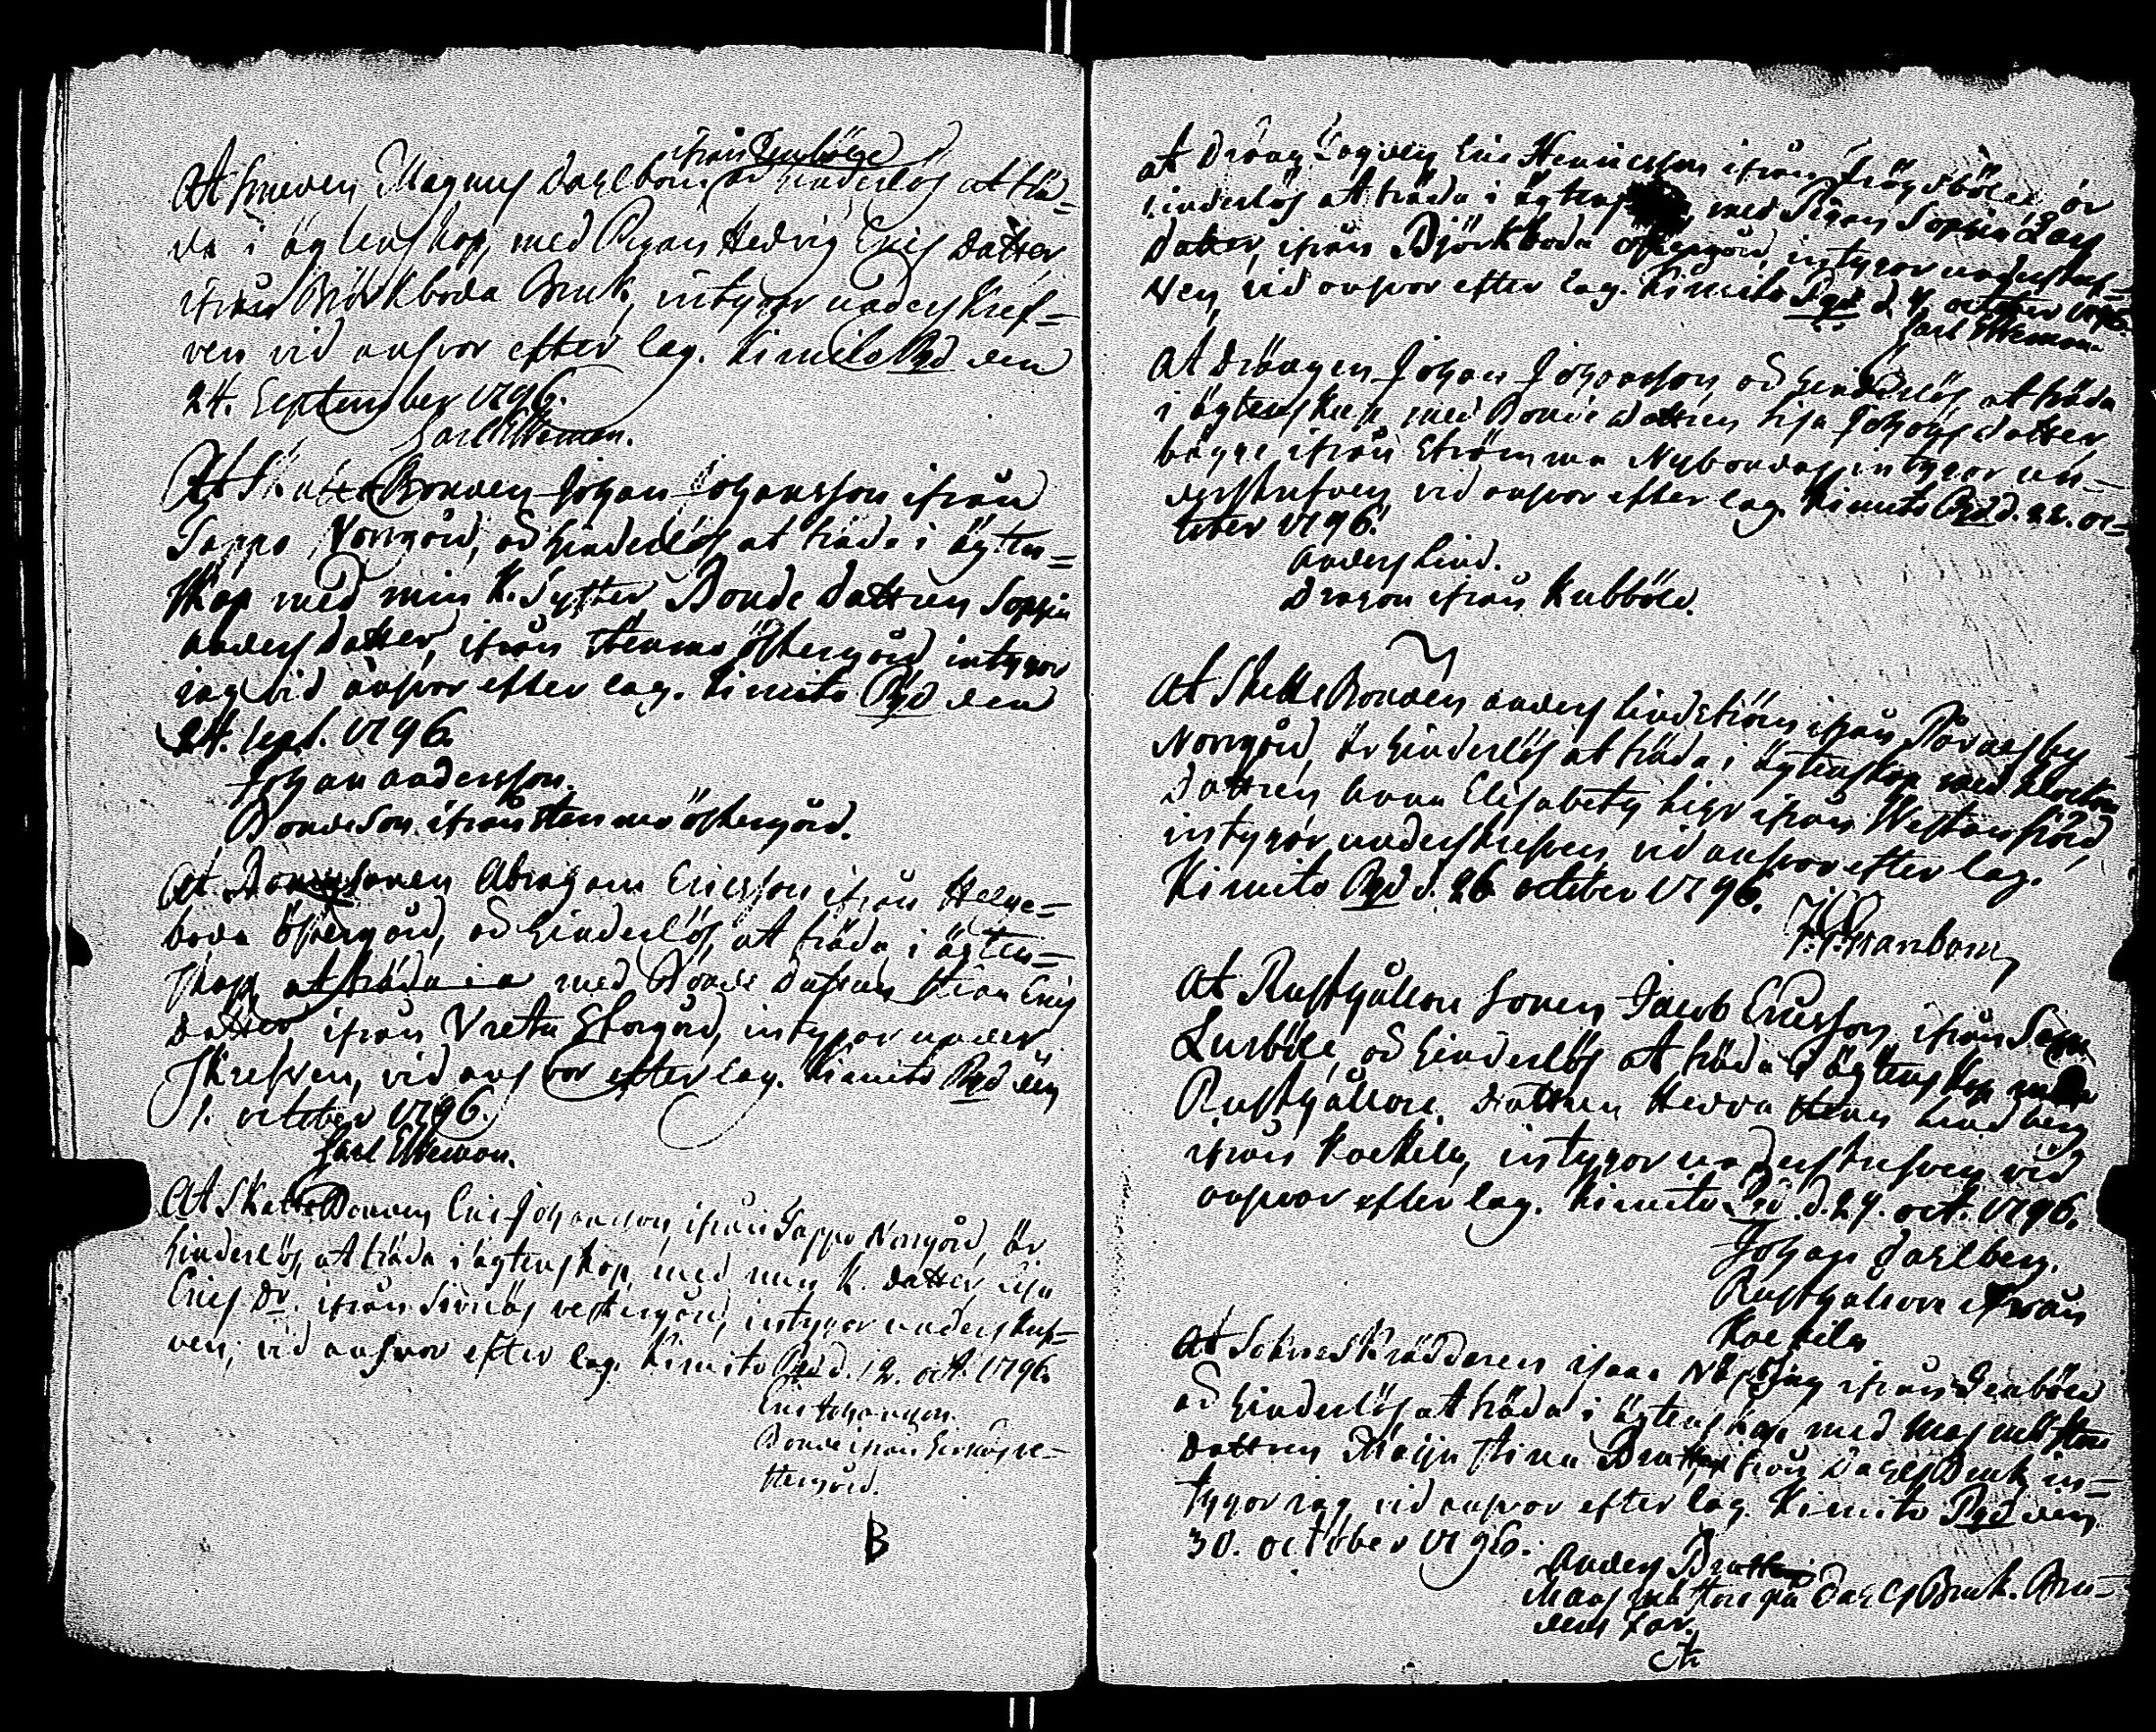 ifrån
At Smeden Magnus Dahlbom är hinderlös at trä=
da i ägtenskap med Pigan Hedvig Erics datter
ifrån Björkboda Bruk, intygar underskref=
ven vid ansvar efter lag. Kimito Pgd den
24. September 1796.
Carl Etteman.
At Skatte Bonden Johan Johansson ifrån
Tappo Norrgård, är hinderlös at träda i ägten=
skap med min K. Syster, Bonde dattren Sophia
Anders datter, ifrån Stenmo östergård intygar
jag vid ansvar efter lag. Kimito Pgd den
24. Sept. 1796.
Johan Andersson.
Bondeson ifrån Stenmo östergård.
At Bondesonen Abraham Ericsson ifrån Helge=
boda östergård, är hinderlös, at träda i ägten=
skap at träda i ä med Bonde dattren Stina Erics
datter ifrån Vreta Storgård, intygar under
skrefven, vid ansvar efter lag. Kimito Pgd den
1. october 1796.
Carl Etteman.
At Skatte Bonden Eric Johansson, ifrån Tappo Norrgård, är
hinderlös, at träda i ägtenskap, med min k. datter, Lisa
Erics Dr. ifrån vestergård, intygar underskref=
ven, vid ansvar efter lag. Kimito Pgd d. 12. oct. 1796.
Eric Johansson.
Bonde ifrån ve=
stergård.
B
at Dräng Eric Henricsson ifrån är
hinderlös at träda i ägtenskap, med Pigan Sophia Lars
datter, ifrån Björkboda östergård, intygar underskref=
ven, vid ansvar efter lag. Kimito Pgd d. october 1796.
Carl Etteman.
At drängen Johan Johansson är hinderlös at träda
i ägtenskap med Bonde dattren Lisa Johans datter
bägge ifrån Strömma Nybondas, intygar un=
derskrefven vid ansvar efter lag. Kimito Pgd d. 22. oc=
tober 1796.
Anders Lind.
Dragon ifrån Kubböle.
At Skatte Bonden Anders Lindström ifrån
Norrgård, är hinderlös at träda i ägtenskap med klockar
dattren Anna Elisabeth ifrån Westanfjärd,
intygar underskrefven vid ansvar efter lag.
Kimito Pgd d. 26 october 1796.
Granbom
At Rusthållare sonen Jacob Ericsson ifrån
är hinderlös at träda i ägtenskap med
Rusthållare dattren Hedda Stina Lindberg
ifrån Kockila, intygar underskrefven vid
ansvar efter lag. Kimito Pgd d. 29. oct. 1796.
Johan Dahlberg.
Rusthållare ifrån
Kockila
At Sokne Skräddaren Isaac ifrån Genböle
är hinderlös at träda i ägtenskap med Masmästare
dattren Maija Stina ifrån Dahls Bruk, in=
tygar jag vid ansvar efter lag. Kimito Pgd den
30. october 1796.
Anders
Masmästare på Dahls Bruk. Bru=
dens far.